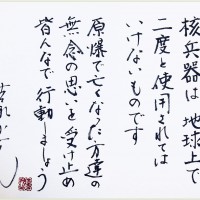 核兵器は、地球上で
二度と使用されては
いけないものです
原爆で亡くなった方達の
無念の思いを受け止め
皆んなで行動しましょう